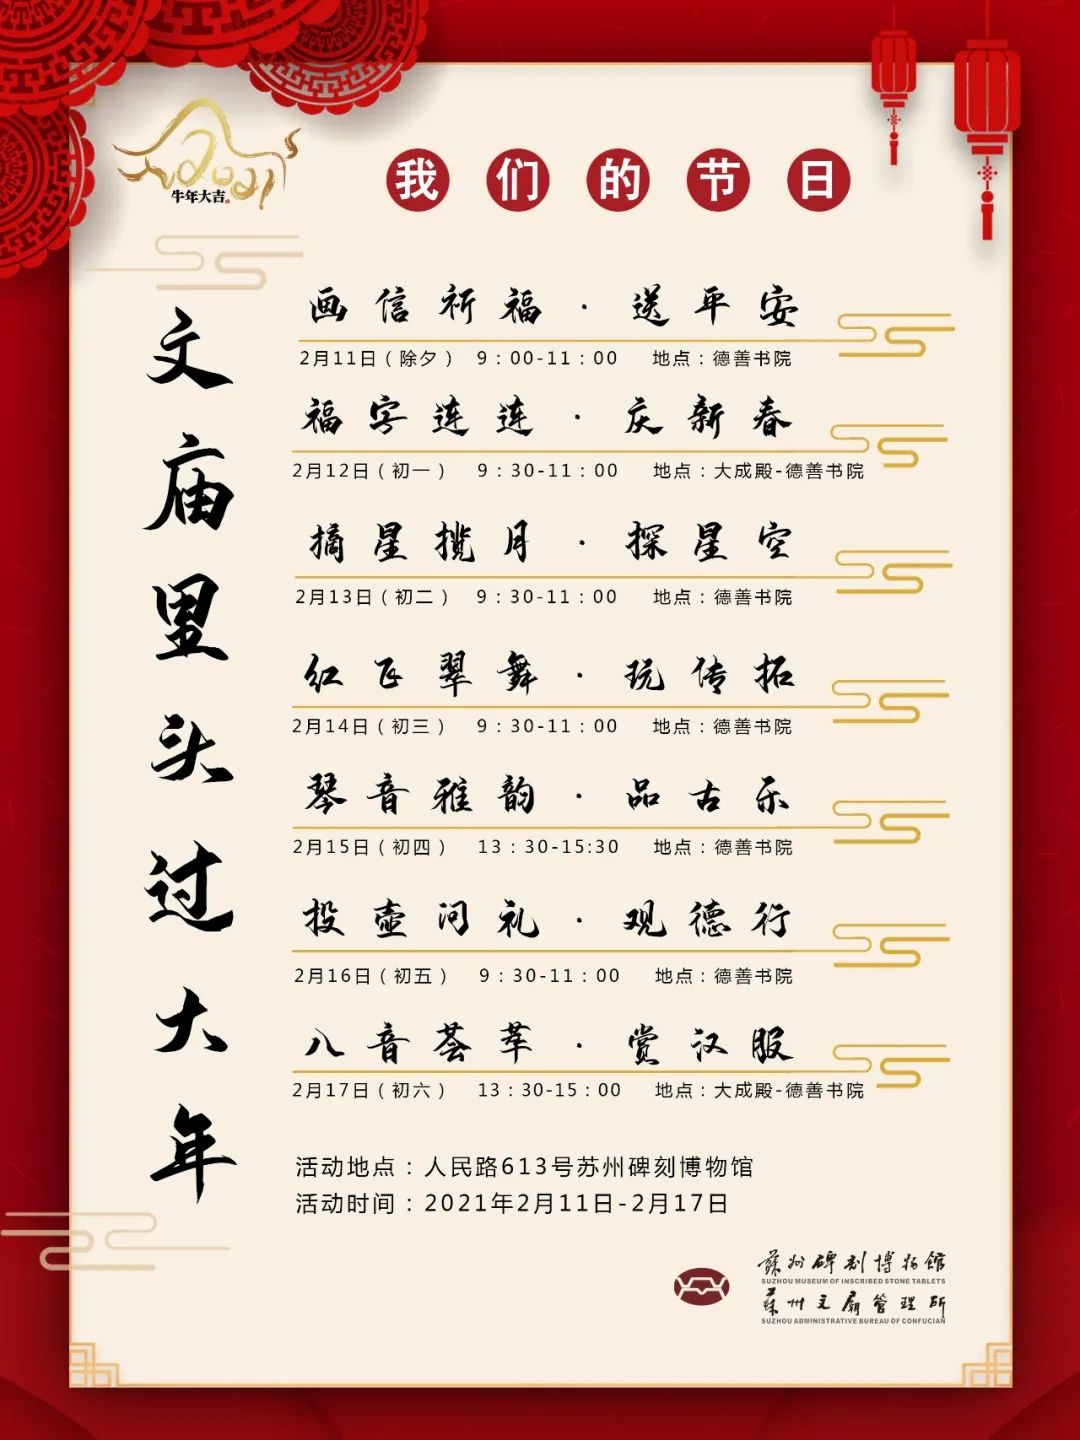 2021
牛年大吉
我们的节日
文庙里头过大年
画信祈福·送平安
2月11日（除夕） 9：00-11：00 地点：德善书院
福字连连·庆新春
2月12日（初一） 9：30-11：00 地点：大成殿-德善书院
摘星揽月·探星空
2月13日（初二） 9：30-11：00 地点：德善书院
红飞翠舞·玩传拓
2月14日（初三） 9：30-11：00 地点：德善书院
琴音雅韵·品古乐
2月15日（初四） 13：30-15:30 地点：德善书院
投壶问礼·观德行
2月16日（初五） 9：30-11：00 地点：德善书院
八音荟萃·赏汉服
2月17日（初六） 13：30-15：00 地点：大成殿-德善书院
活动地点：人民路613号苏州碑刻博物馆
活动时间：2021年2月11日-2月17日
蘇州碑刻博物館
SUZHOU MUSEUM OF INSCRIBED STONE TABLETS
蘇州文廟管理所
SUZHOU ADMINISTRATIVE BUREAU OF CONFUCIAN